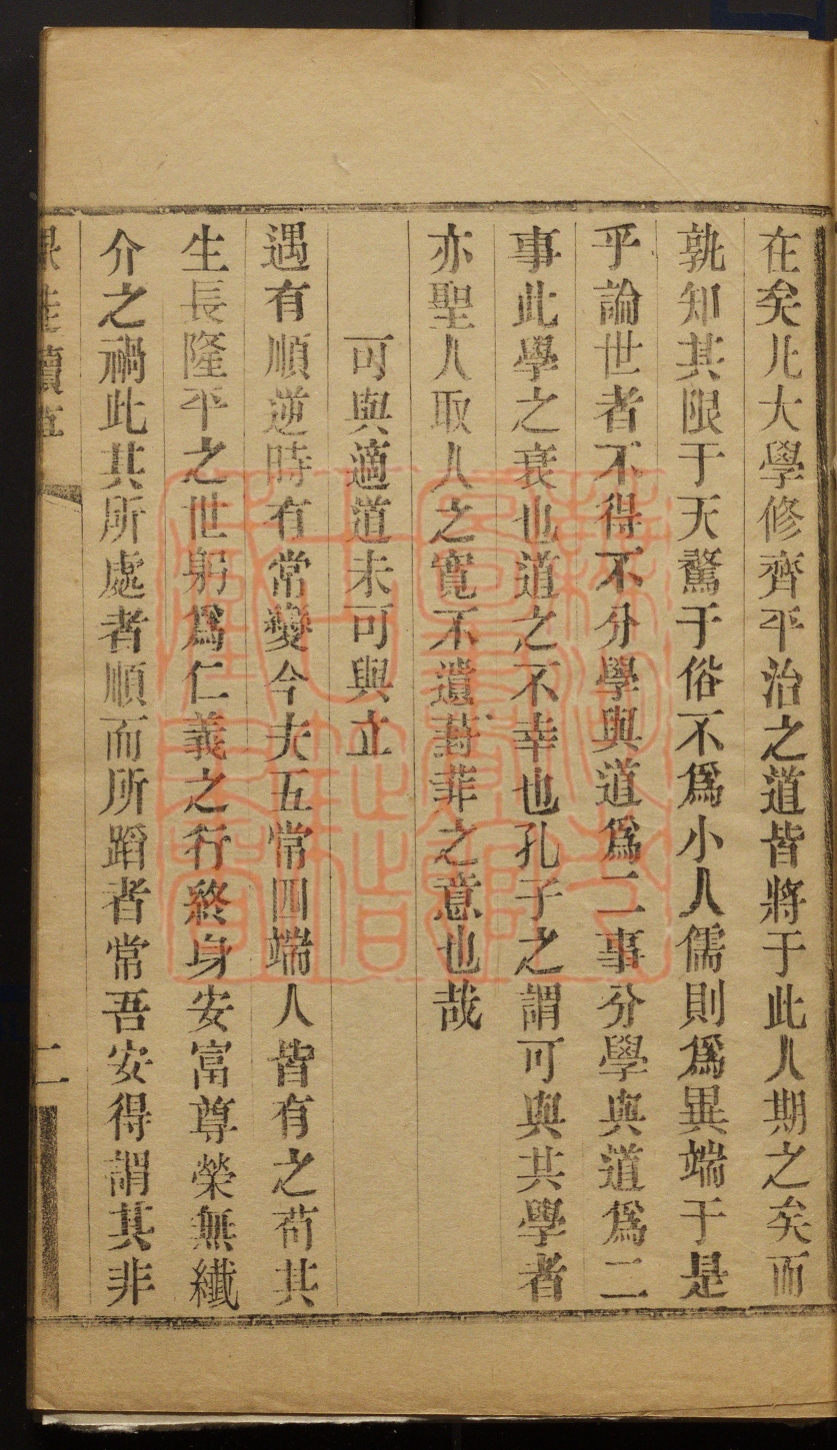 在矣凡大學修齊平治之道皆將于此人期之矣而
孰知其限于天騖于俗不爲小人儒則爲異端于是
乎論世者不得不分學與道爲二事分學與道爲二
事此學之衰也道之不幸也孔子之謂可與共學者
亦聖人取人之寬不遺葑菲之意也哉
可與適道未可與立
遇有順逆時有常變今夫五常四端人皆有之苟其
生長隆平之世躬爲仁義之行終身安富尊榮無纖
介之禍此其所處者順而所蹈者常吾安得謂其非
二